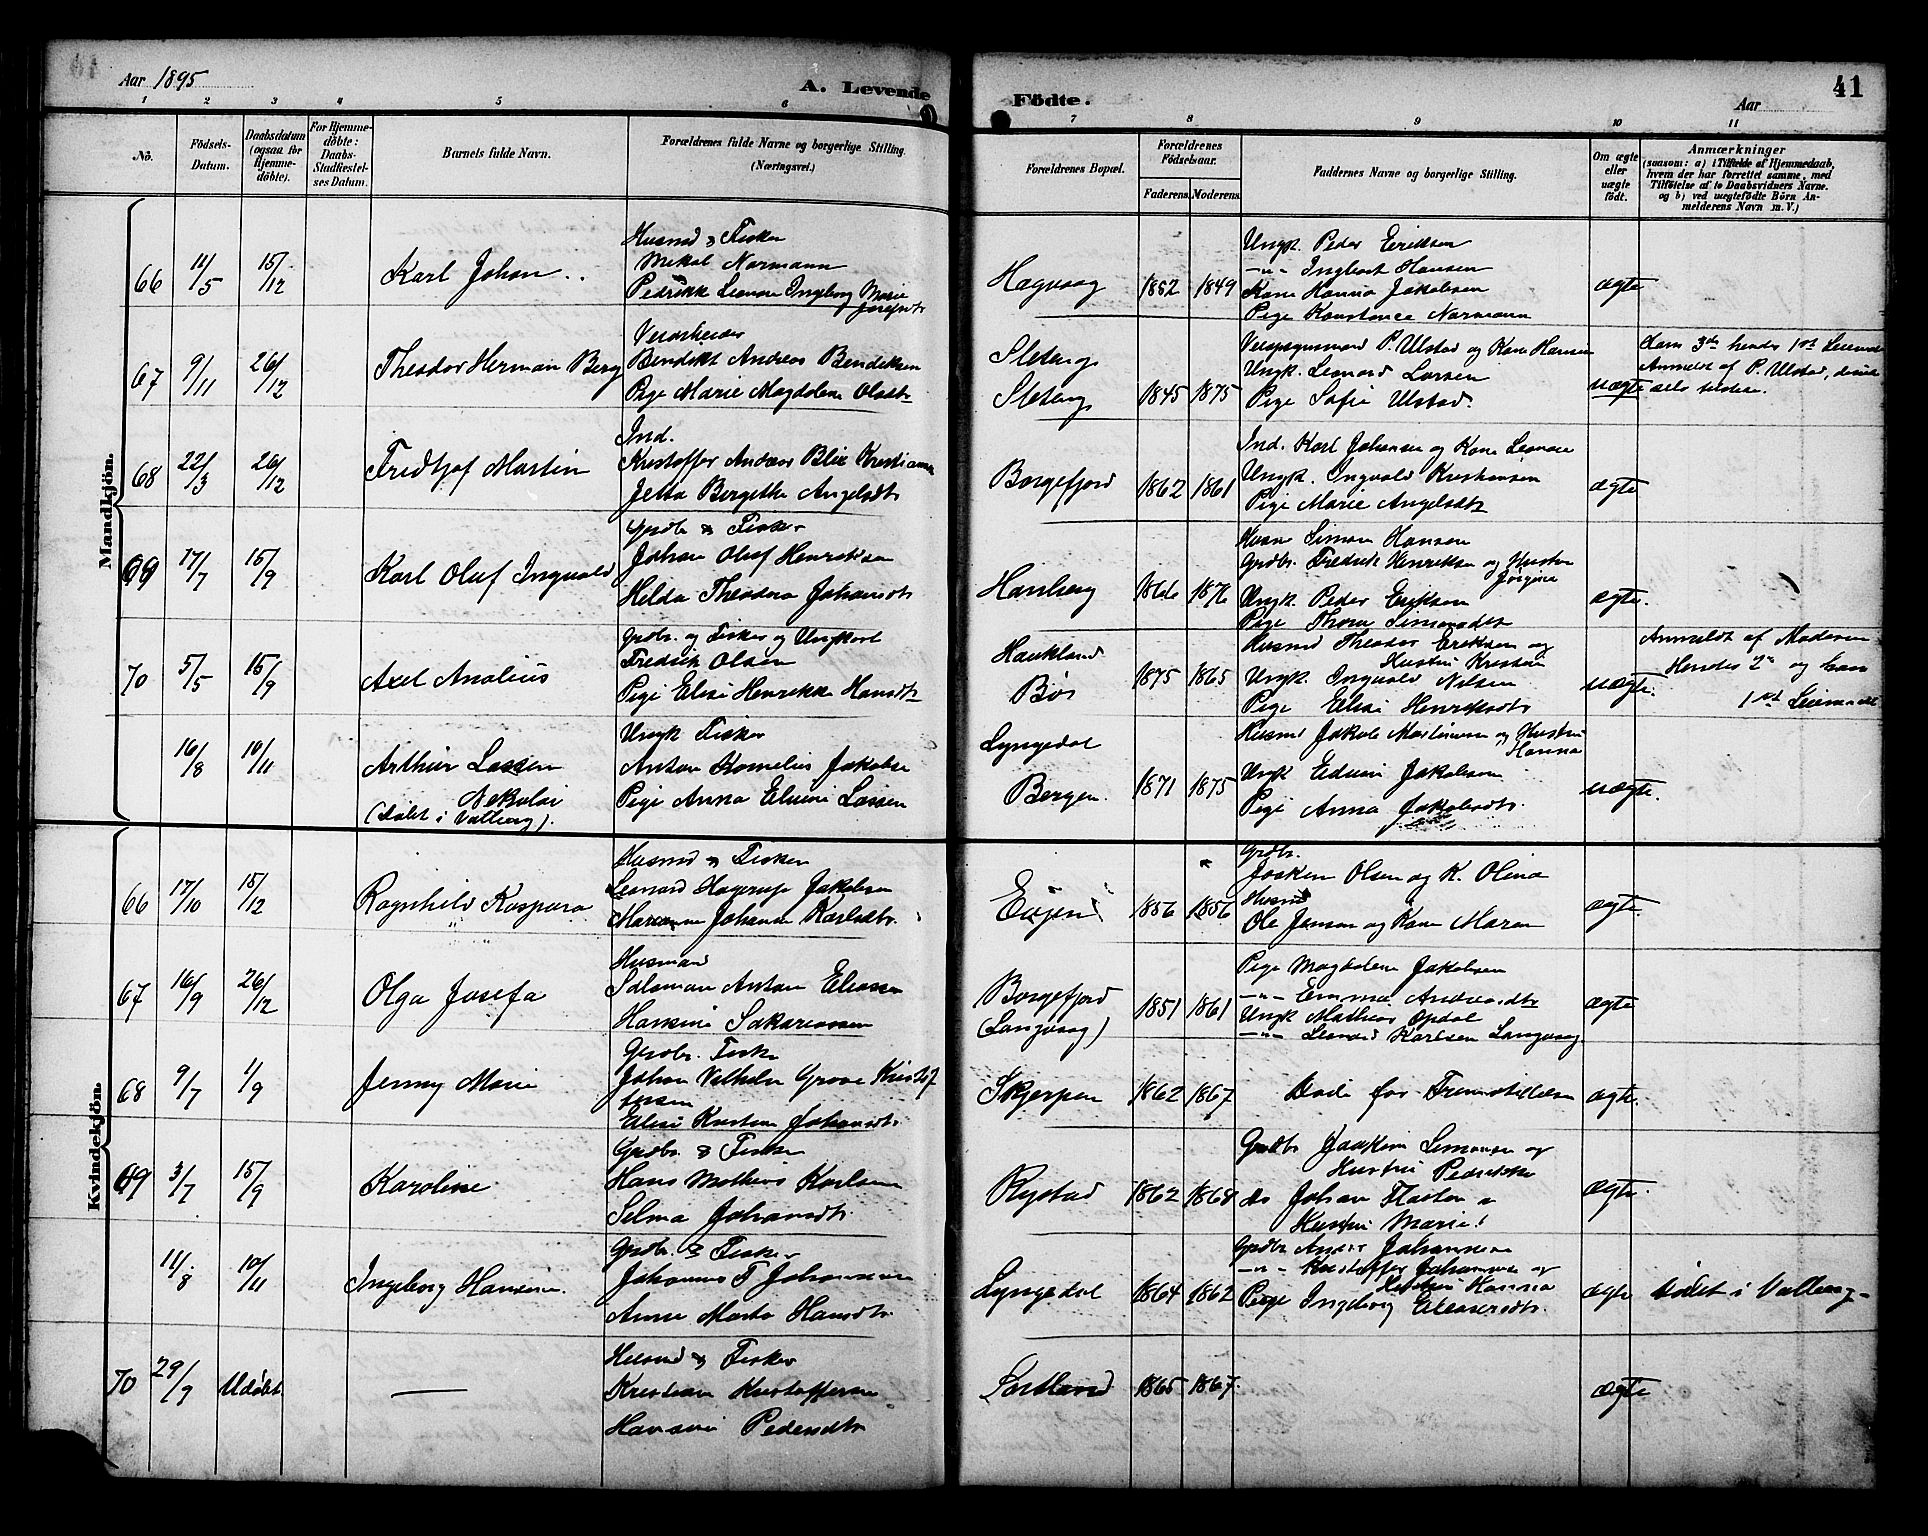 Aar 1895
A. Levende
Födte.
Aar
41
1 2 3 4 5 6 7 8 9 10 11
No.
Födsels-
Datum.
Daabsdatum
(ogsaa for
Hjemme-
döbte).
For Hjemme-
döbte:
Daabs-
Stadfæstel-
ses Datum.
Barnets fulde Navn.
Forældrenes fulde Navne og borgerlige Stilling.
(Næringsvei.)
Forældrenes Bopæl.
Forældrenes
Födselsaar.
Faderens. Moderens.
Faddernes Navne og borgerlige Stilling.
Om ægte
eller
uægte
födt.
Anmærkninger
(saasom: a) i Tilfælde af Hjemmedaab,
hvem der har forrettet samme, med
Tilföielse af to Daabsvidners Navne.
og b) ved uægtefödte Börn An-
melderens Navn m. V.)
Mandkjön.
66 11/5 15/12 Karl Johan
Husmd & Fisker
Mekal Normann
Pedrikke Leonore Ingeborg Marie
Josefsdtr
Hagvaag 1852 1849
Ungk. Peder Eriksen
-"- Ingbert Hansen
Kone Hanna Jakobsen
Pige Konstance Normann
ægte
67 9/11 26/12 Theodor Herman Berg
Veiarbeider
Bendikt Andreas Bendiksen
Pige Marie Magdalene Olsdtr
Sleteng
Sleteng 1845 1875
P. Ulstad og Kone Hansine
Ungk. Leonard Larsen
Pige Sofie Ulstad.
uægte
hans 3die hendes 1ste Leiermaal
Anmeldt af P. Ulstad,
68 22/3 26/12 Fredtjof Martin
Ind.
Kristoffer Andreas Blix Kristiansen
Jetta Bergitte Angelsdtr
Borgefjord 1862 1861
Ind. Karl Johansen og Kone Leonore
Ungk. Ingvald Kristiansen
Pige Marie Angelsdtr
ægte
69 17/7 15/9 Karl Oluf Ingvald
Grdbr & Fisker
Johan Oluf Henriksen
Helda Theodora Johansdtr
Hanberg 1866 1876
Simon Hansen
Grdbr. Fredrik Henriksen og Hustru
Jörgine
Ungk. Peder Eriksen
Pige Thora Simonsdtr
ægte.
70 5/5 15/9 Axel Analius
Grdbr. og Fisker og Ungkarl
Fredrik Olsen
Pige Elise Henrikke Hansdtr
Haukland
Bös 1875 1865
Husmd Theodor Eriksen og
Hustru Kristine
Ungk. Ingvald Nilsen
Pige Elise Henriksdtr
uægte.
Anmeldt af Moderen
Hendes 2det og hans
1ste Leiermaal
16/8 10/11 Arthur Lassen
Nekolai
(Döbt i Valberg).
Ungk Fisker
Anton Kornelius Jakobsen
Pige Anna Elvine Lassen
Lyngedal
Bergen. 1871 1875
Husmd Jakob Martinsen og Hustru
Hanna
Ungk Edvin Jakobsen
Pige Anna Jakobsdtr.
uægte.
Kvindekjön.
66 17/10 15/12 Ragnhild Kaspara
Husmd & Fisker
Leonard Hagerup Jakobsen
Marianne Johanna Karlsdtr.
1856 1856
Grdbr.
Joakim Olsen og K. Olina
Husmd
Ole Jensen og Kone Maren
ægte.
67 16/9 26/12 Olga Josefa
Husmand
Salomon Anton Eliassen
Hansine Sakariassen
Borgefjord
(Langvaag) 1851 1861
Pige Magdalene Jakobsen
-"- Emma Andreasdtr
Ungk Mathias Opdal
-"- Leonard Karlsen Langvaag
ægte
68 9/7 1/9 Jenny Marie
Grdbr. Fisker
Johan Vilhelm Grove Kristof
fersen
Elise Kirstine Johansdtr
Skjerpen 1862 1867
Döde för Fremstillelsen
ægte.
69 3/7 15/9 Karoline
Grdbr. & Fisker
Hans Mathias Karlsen
Selma Johansdtr
Rystad 1862 1868
Grdbr Joakim Simonsen og
Hustru Pedrikke
do Johan Hustru Marie
ægte.
11/8 10/11 Ingeborg Hansine
Grdbr. & Fisker
Johannes T Johannesen
Anne Marta Hansdtr
Lyngedal 1864 1862
Grdbr Anders Johannesen
-"- Kristoffer Johannesen og
Hustru Hanna
Pige Ingeborg Eliasesdtr.
ægte
Döbt i Valberg
70 29/9 Udöbt. —
Husmd & Fisker
Kristian Kristoffersen
Hansine Pedersdtr
Sortland 1865 1867.
ægte